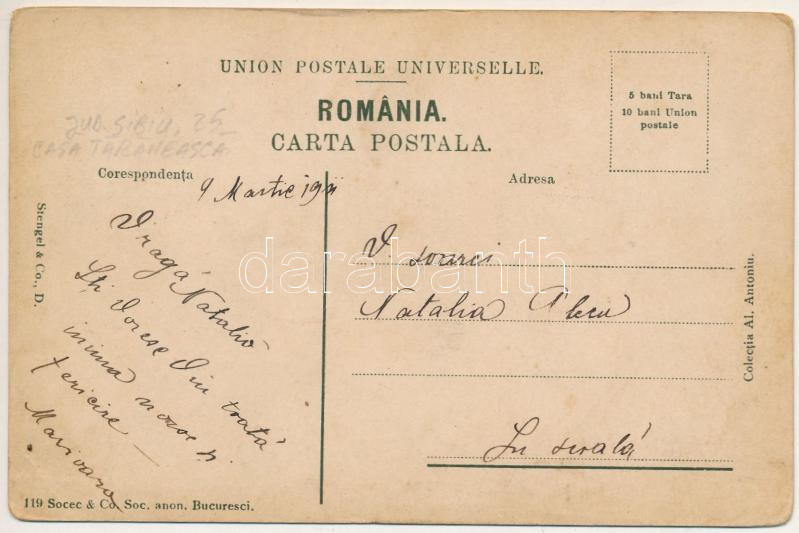 UNION POSTALE UNIVERSELLE.
ROMÂNIA.
CARTA POSTALA.
5 bani Tara
10 bani Union
postale
JUD. SIBIU, 25
CASA TARANEASCA
Corespondenţa
Adresa
9 Martie 1911
Dragă Natalio
Îţi doresc din toată
inima noroc şi
fericire —
Marioara
D. soarei
Natalia
În scoală
Stengel & Co., D.
Colecţia Al. Antoniu.
119 Socec & Co. Soc. anon. Bucuresci.
darabanth